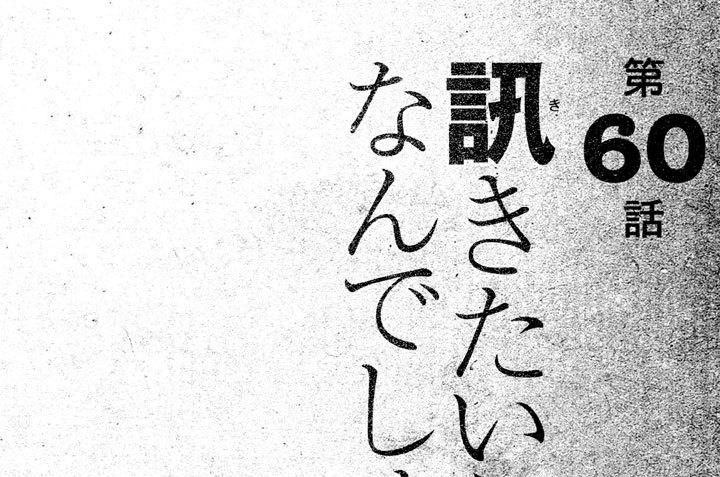 第60話
訊きたい
なんでし